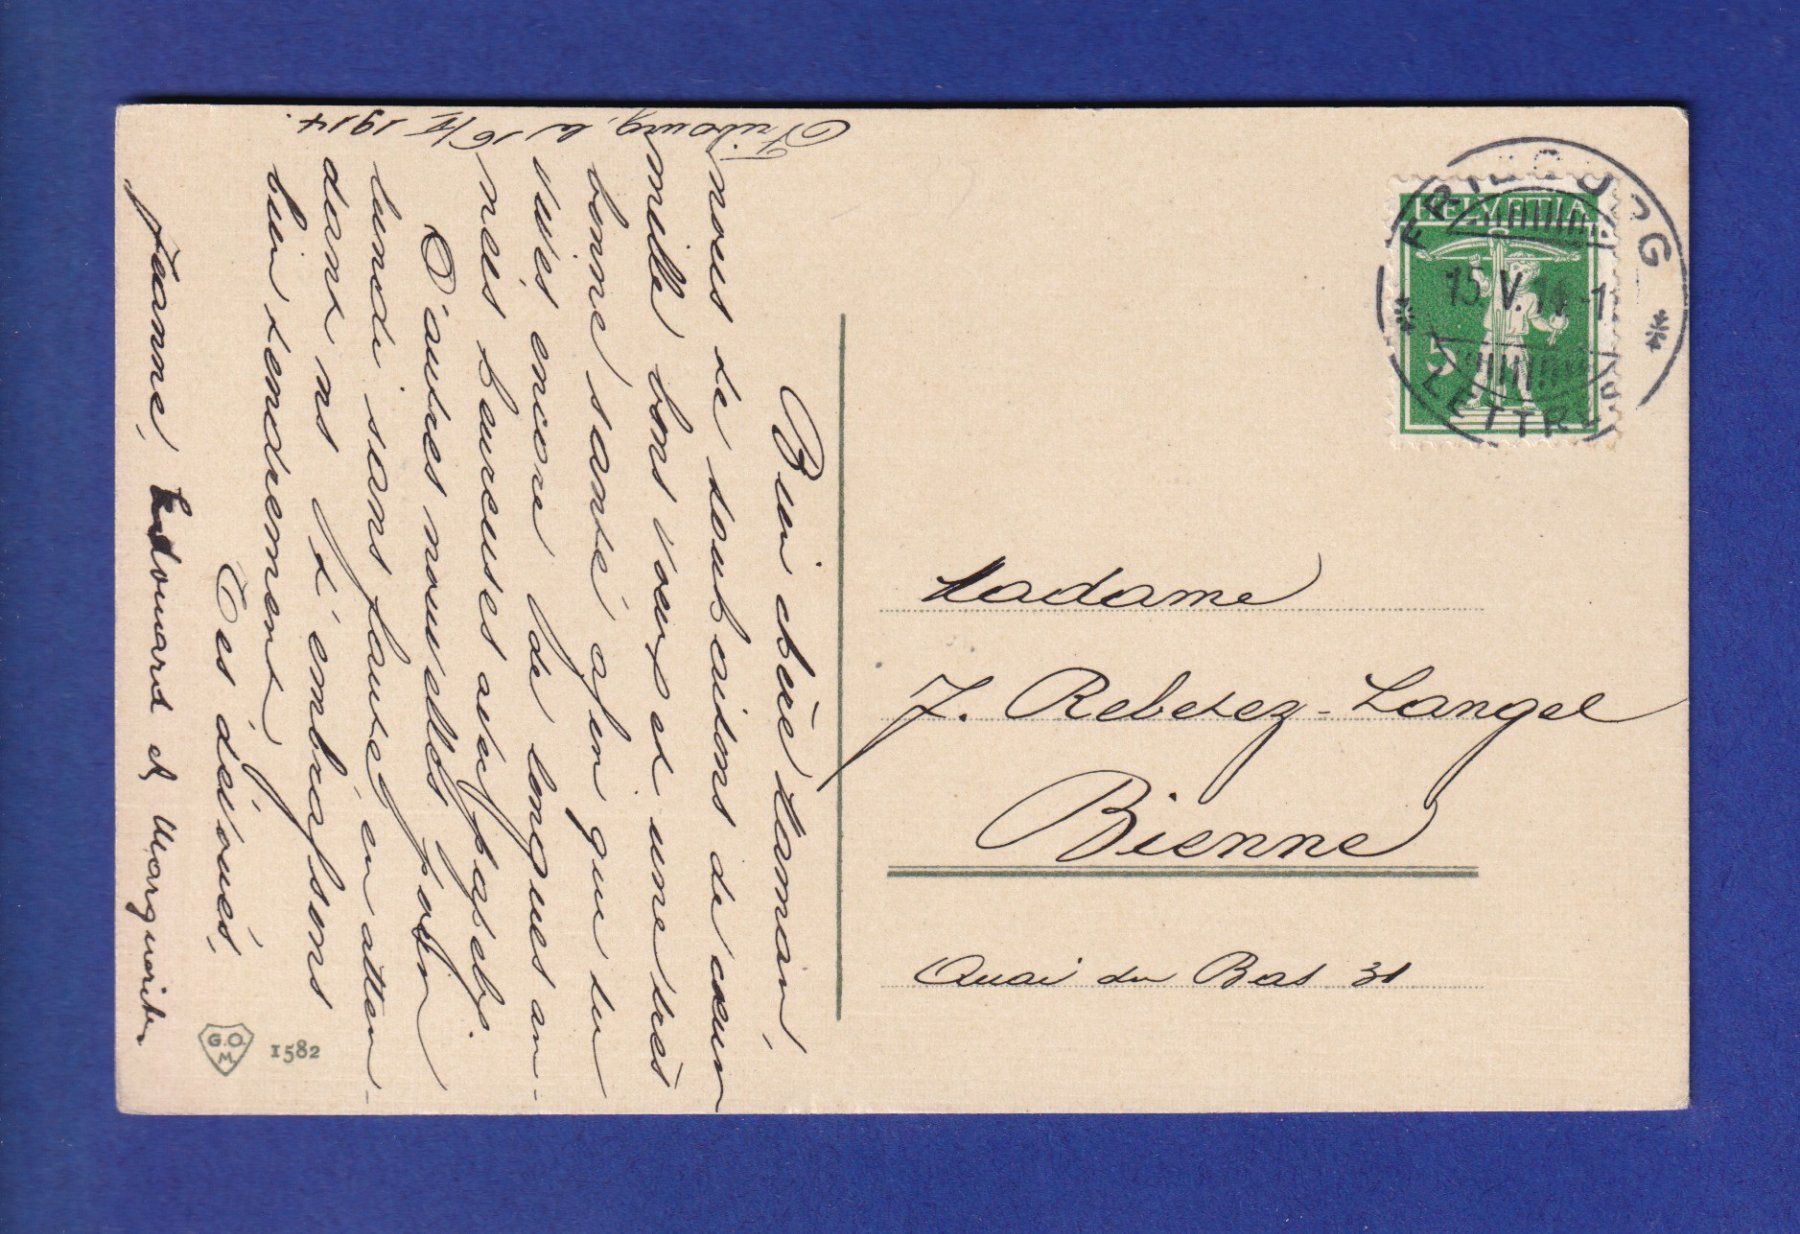 Fribourg, le 16/V 1914.
Bien chère maman,
nous te souhaitons de cœur
mille bons vœux et une très
bonne santé afin que tu
vives encore de longues an-
nées heureuses
D'autres nouvelles
lundi sans faute, en atten-
dant ns t'embrassons
bien tendrement,
Tes dévoués,
Jeanne, Edouard et Marguerite
G.O.M. 1582
HELVETIA
5
FRIBOURG
15.V.14.-1
LETTRES
Madame
J. Rebetez-Langel
Bienne
Quai du Bas 31